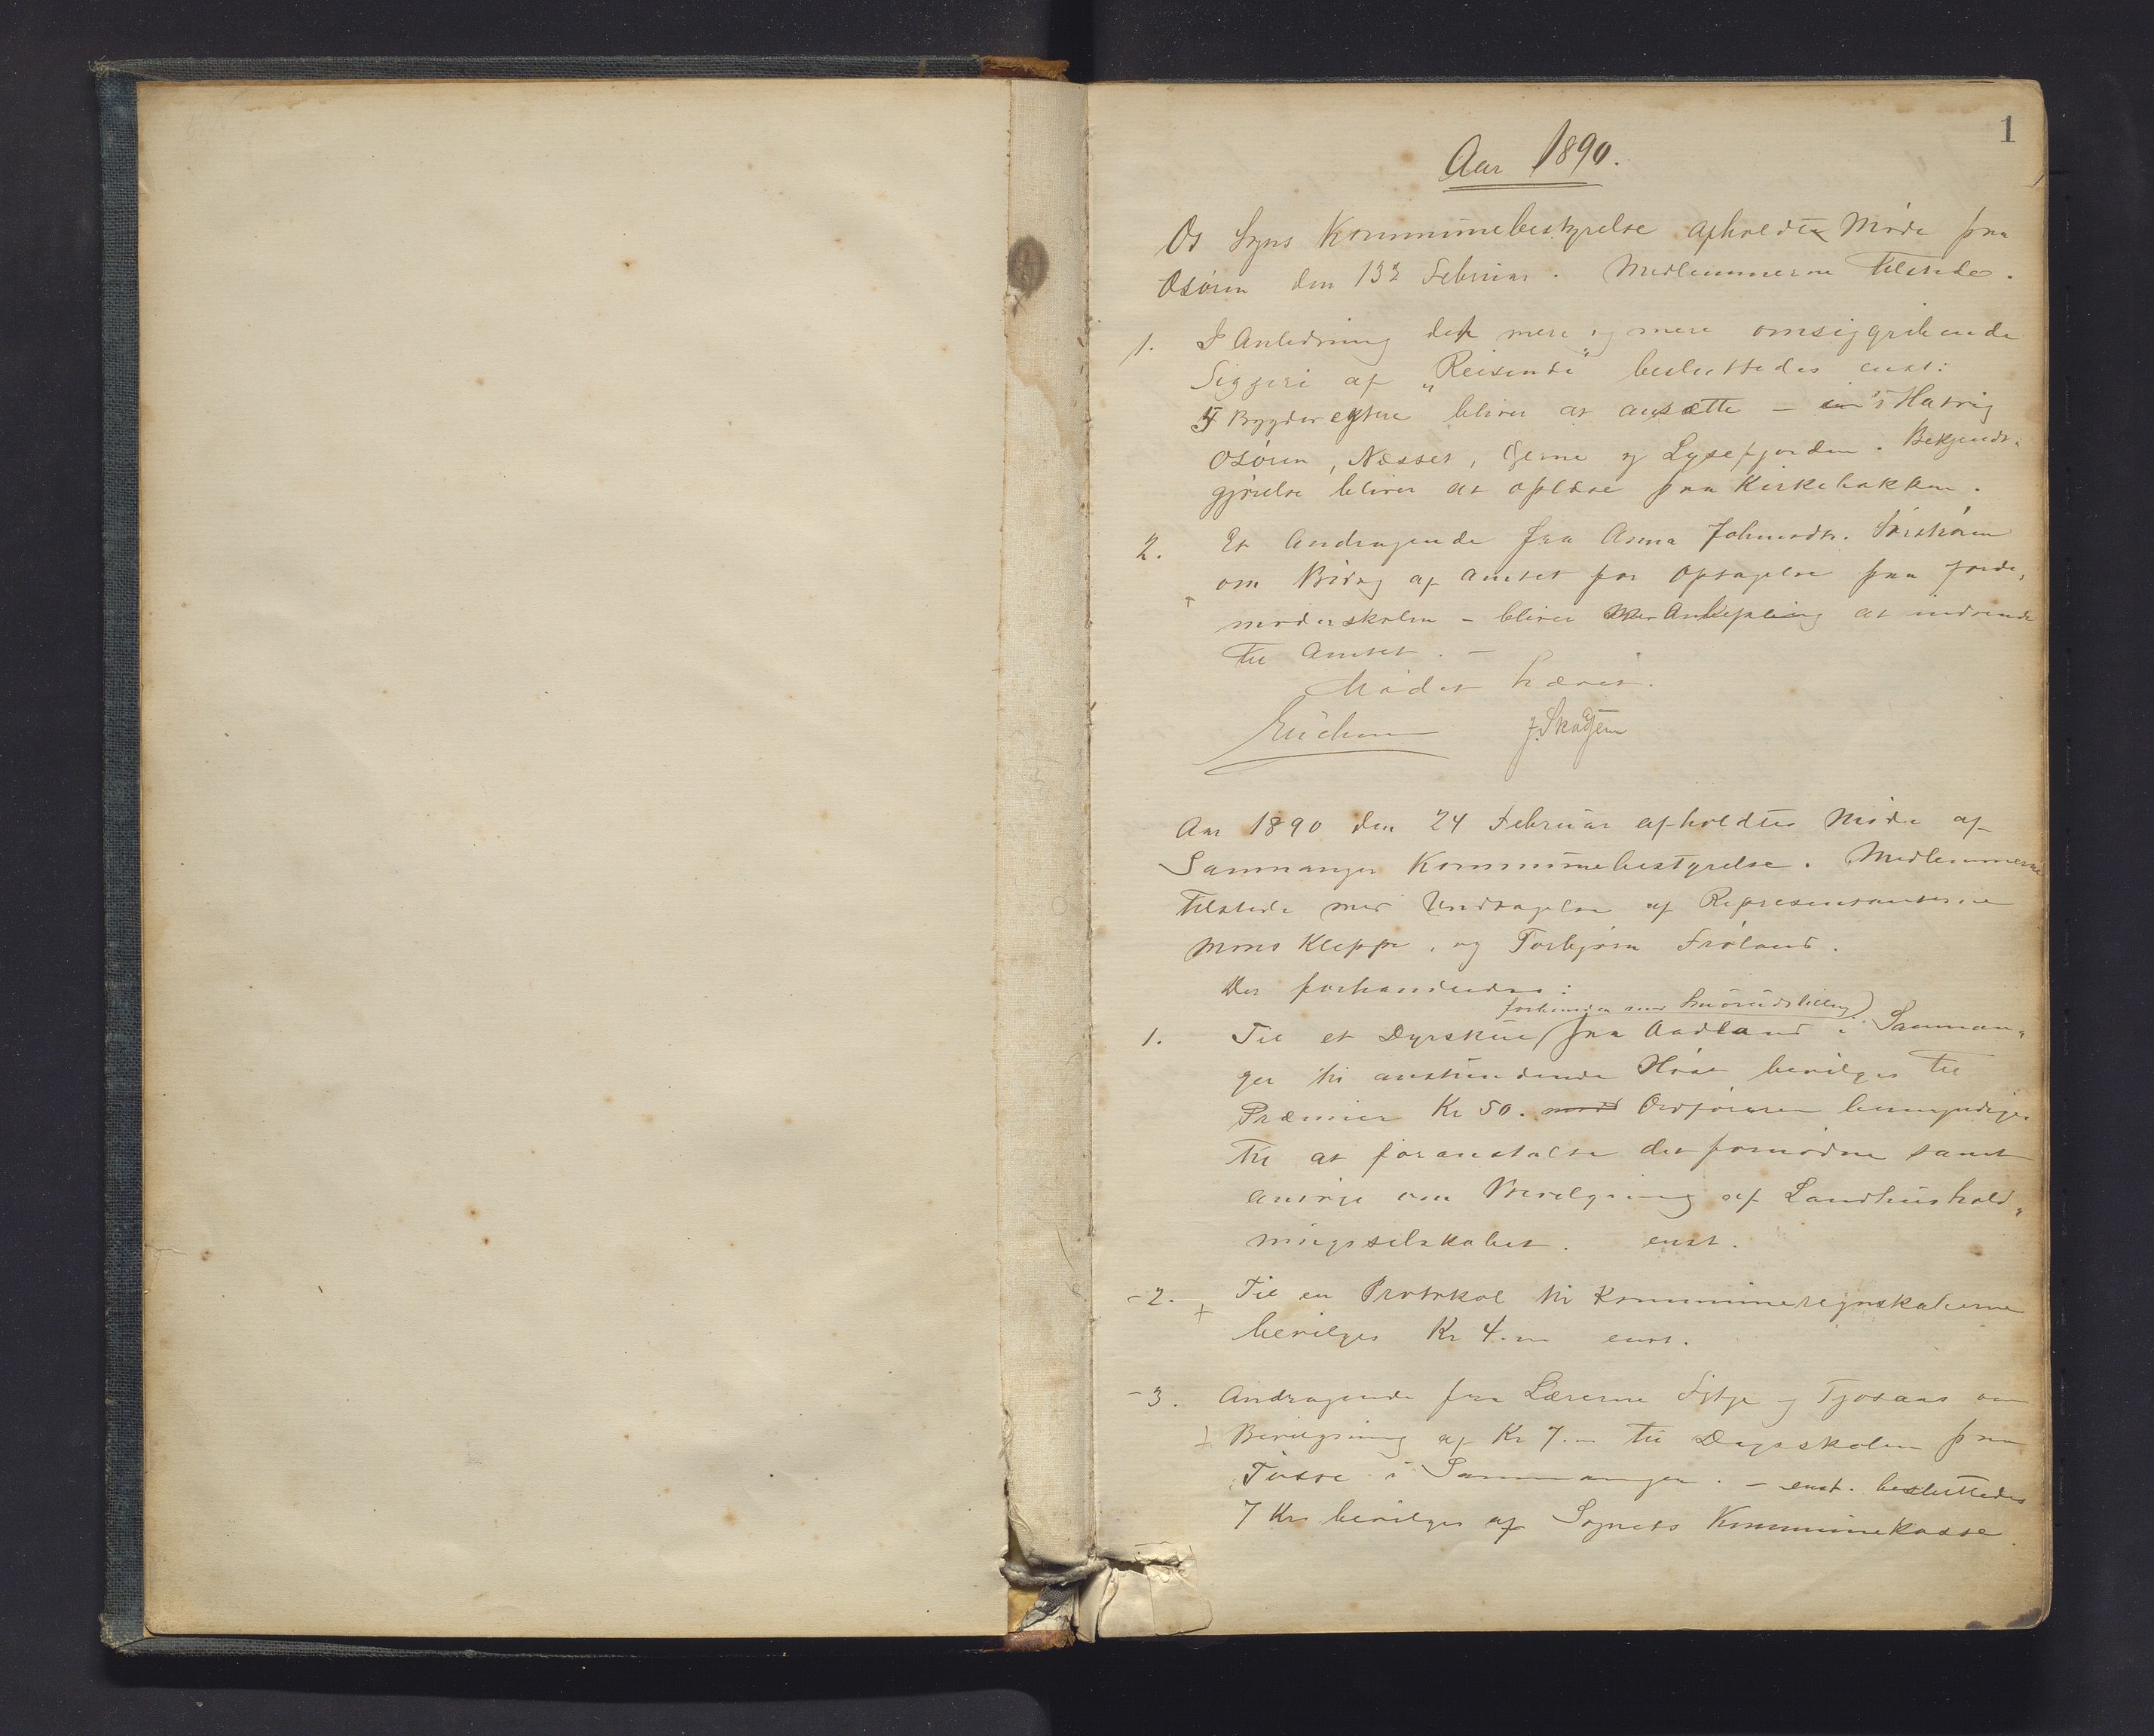 1
Aar 1890.
Os Sogns Kommunebestyrelse afholdte Møde paa
Osøren den 13de Februar. Medlemmerne tilstede.
1. I Anledning det mere og mere omsiggribende
Tiggeri af „Reisende" besluttedes enst:
5 Bygdevægtere bliver at ansætte – i Hatvig
Osøren, Næsset, Gjerne og Lysefjorden. Bekjendt„
gjørelse bliver at oplæse paa Kirkebakken.
2. Et Andragende fra Anna Johnsdtr.
om Bidrag af Amtet for Optagelse paa Jorde„
moderskolen – bliver med Anbefaling at indsende
til Amtet. –
Mødet hævet.
J. Skogjem
Aar 1890 den 24 Februar afholdtes Møde af
Samnanger Kommunebestyrelse. Medlemmerne
tilstede med Undtagelse af Repræsentanterne
Mons Kleppe, og Torbjørn Frøland.
Der forhandledes:
forbunden med Smørudstilling)
1. Til et Dyrskue (paa Aadland i Samnan„
ger til anstundende Høst bevilges til
Præmier Kr 50. med Ordføreren bemyndiges
til at foranstalte det fornødne samt
ansøge om Bevilgning af Landhushold„
ningsselskabet. enst.
-2. Til en Protokol til Kommuneregnskaberne
+
bevilges Kr 4.00 enst.
-3. Andragende fra Lærerne og Tjosaas om
+ Bevilgning af Kr 7.00 til Dagsskolen paa
Tøsse i Samnanger. – enst. besluttedes
7 Kr bevilges af Sognets Kommunekasse